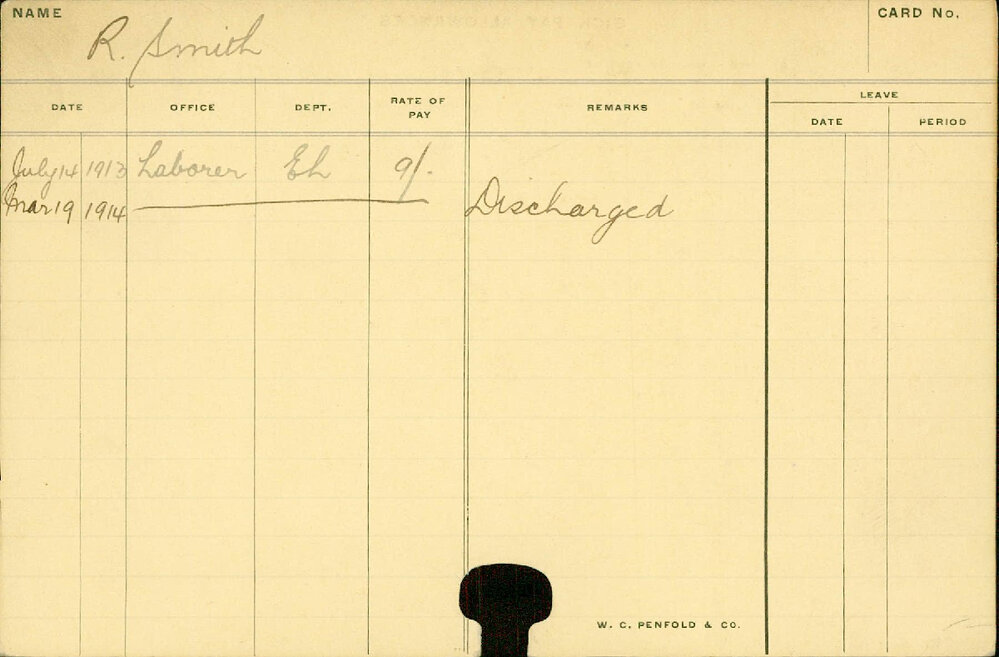 NAME R. Smith CARD No.
DATE OFFICE DEPT. RATE OF PAY REMARKS LEAVE
DATE PERIOD
July 14 1913 Laborer Eh 9/-
Mar 19 1914 Discharged
W. C. PENFOLD & CO.